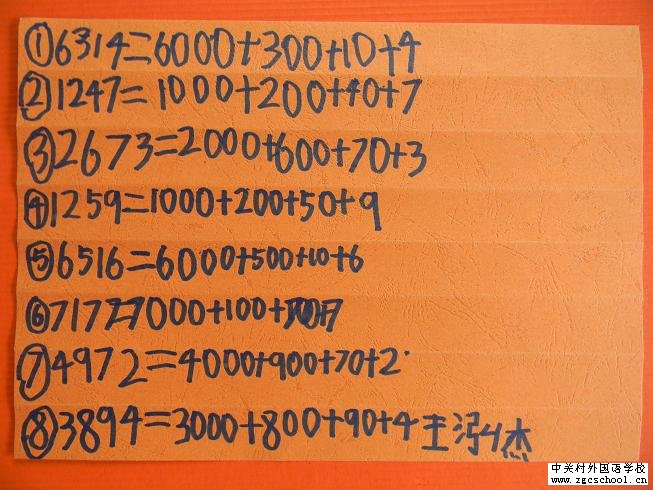 ①6314=6000+300+10+4
②1247=1000+200+40+7
③2673=2000+600+70+3
④1259=1000+200+50+9
⑤6516=6000+500+10+6
⑥7177=7000+100+70+7
⑦4972=4000+900+70+2
⑧3894=3000+800+90+4 王 杰
中关村外国语学校
www.zgcschool.cn